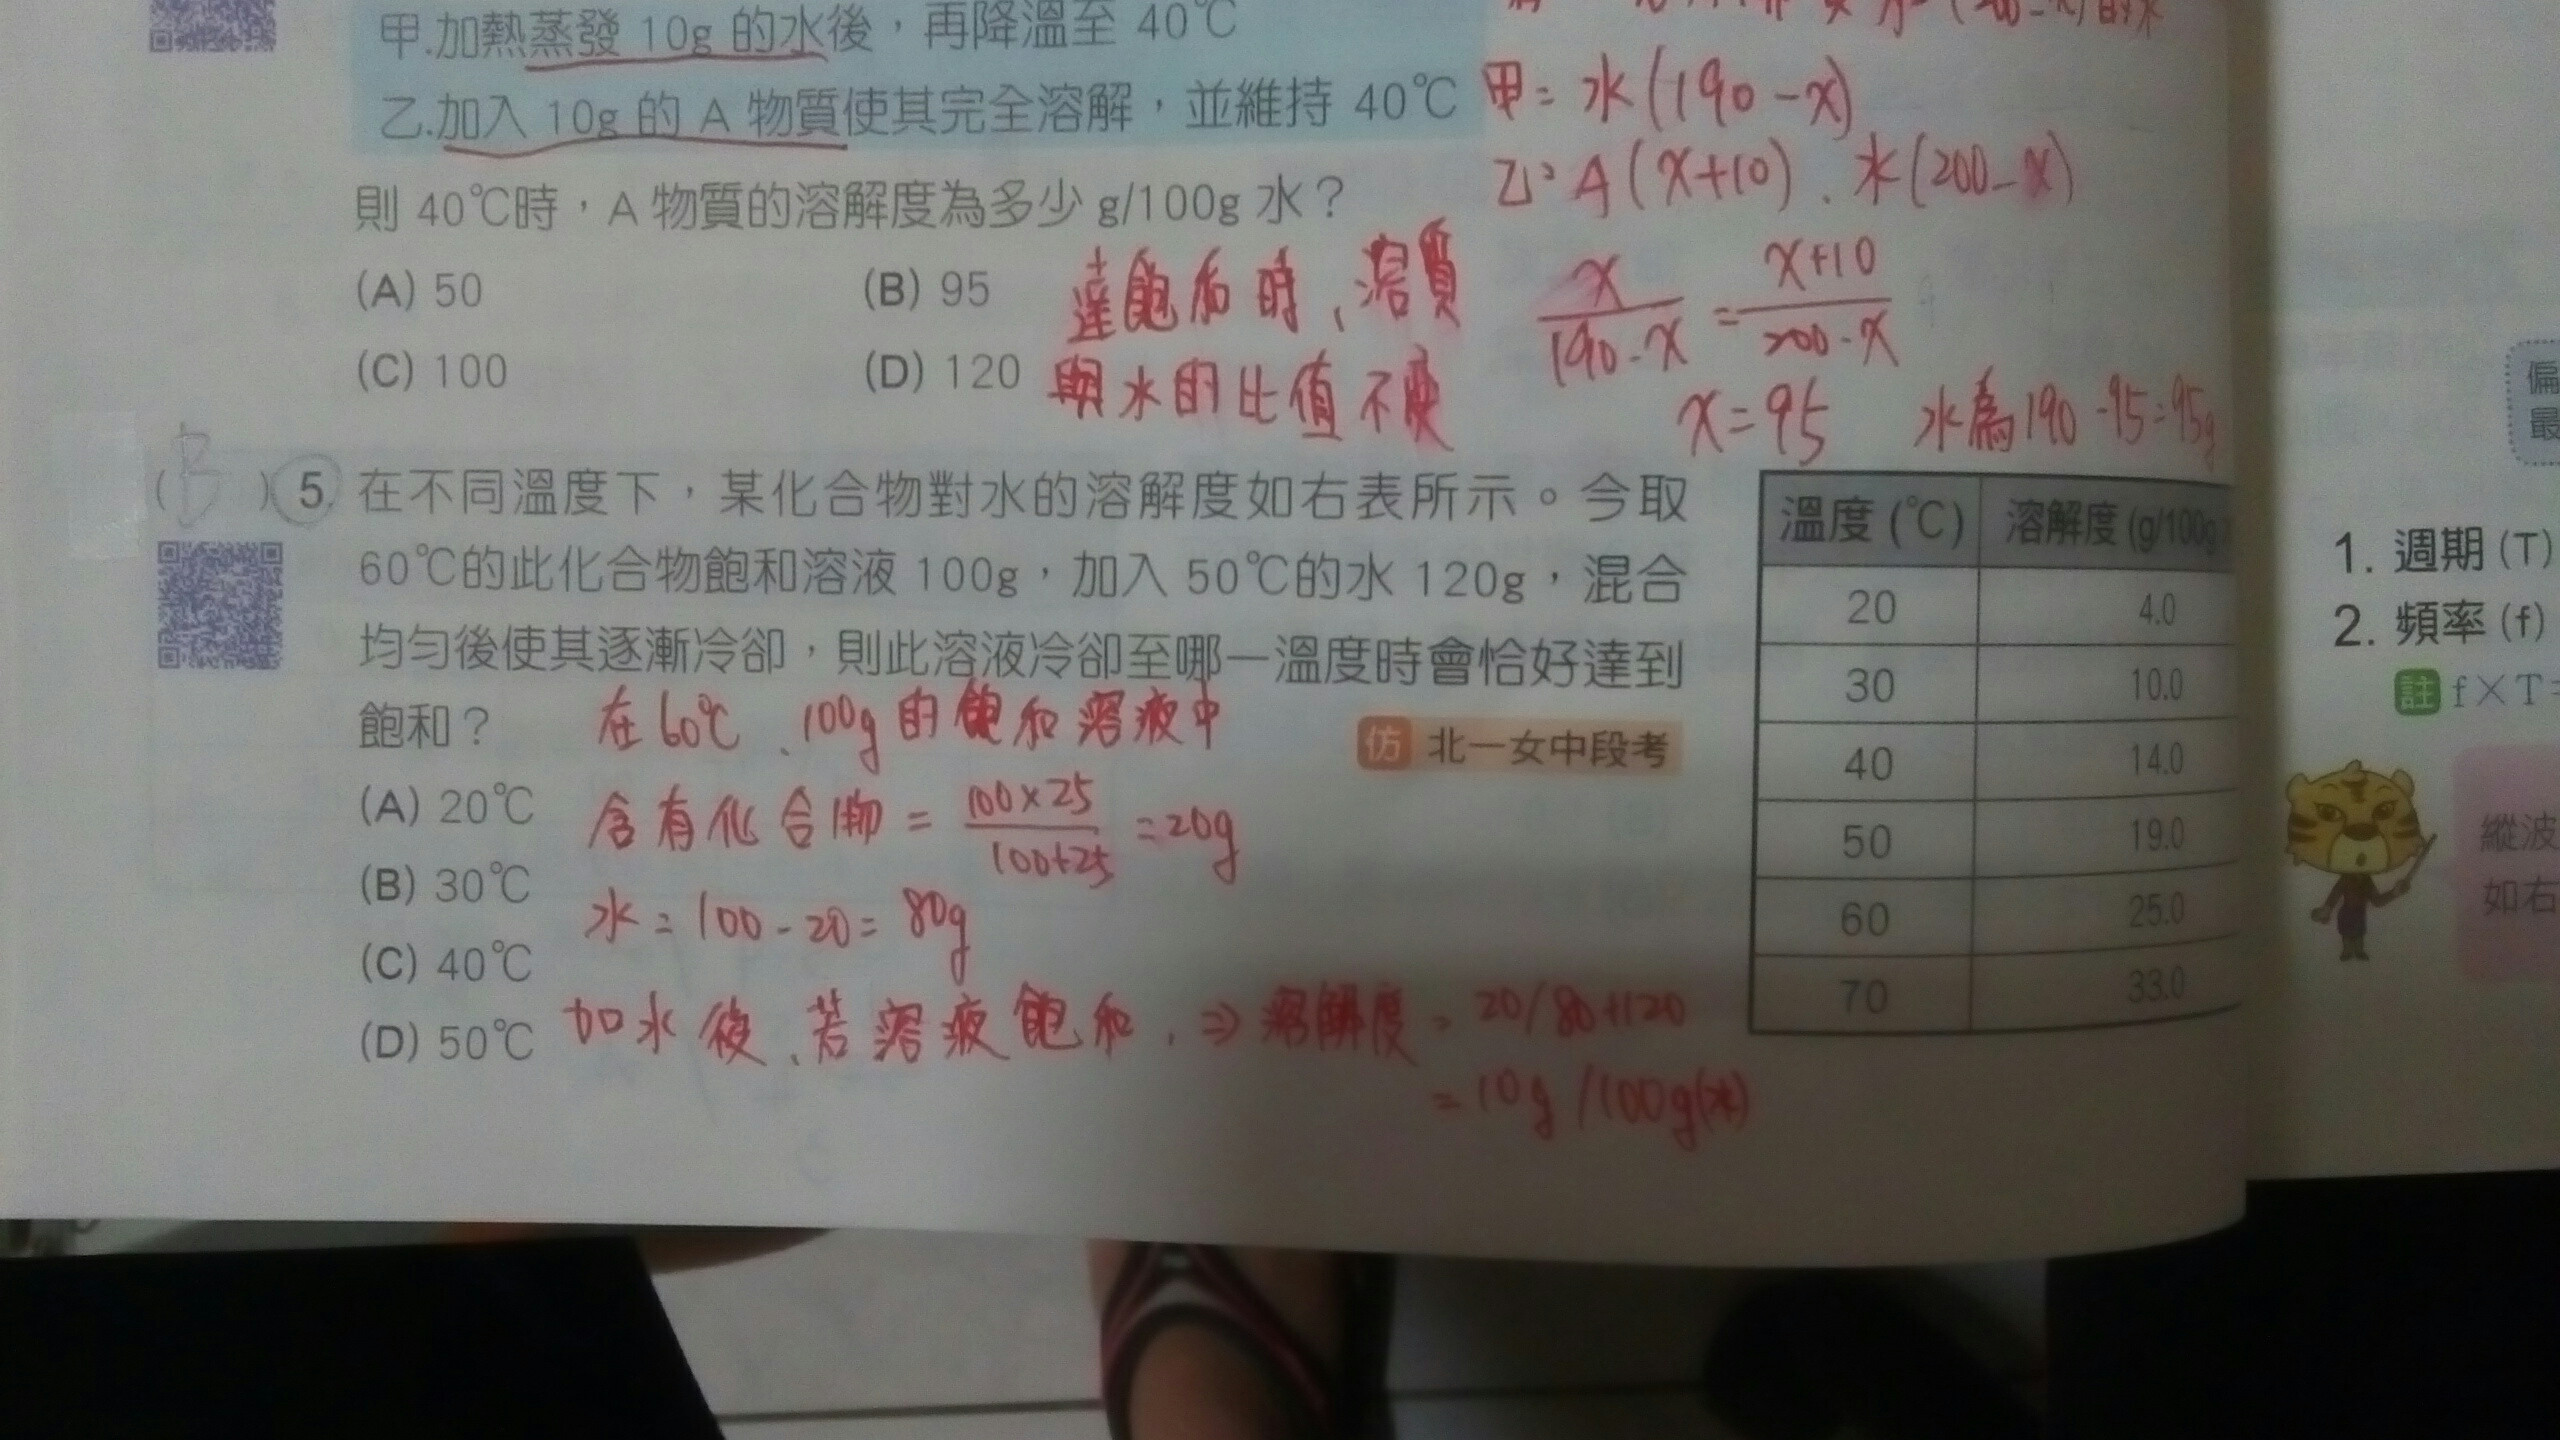 甲.加熱蒸發 10g 的水後，再降溫至 40℃
乙.加入 10g 的 A 物質使其完全溶解，並維持 40℃
則 40℃時，A 物質的溶解度為多少 g/100g 水？
(A) 50
(B) 95
(C) 100
(D) 120
甲= 水(190-x)
乙: A (x+10)、水(200-x)
x/190-x = x+10/200-x
x=95 水為190-95=95g
達飽和時、溶質
與水的比值不變
(B) 5. 在不同溫度下，某化合物對水的溶解度如右表所示。今取
60℃的此化合物飽和溶液 100g，加入 50℃的水 120g，混合
均勻後使其逐漸冷卻，則此溶液冷卻至哪一溫度時會恰好達到
飽和？
仿 北一女中段考
(A) 20℃
(B) 30℃
(C) 40℃
(D) 50℃
在60℃、100g的飽和溶液中
含有化合物 = 100×25/100+25 =20g
水=100-20=80g
加水後、若溶液飽和，⇒溶解度=20/80+120
=10g/100g(水)
溫度 (℃) 溶解度 (g/100g
20 4.0
30 10.0
40 14.0
50 19.0
60 25.0
70 33.0
偏
最
1. 週期 (T)
2. 頻率 (f)
註 f×T=
縱波
如右